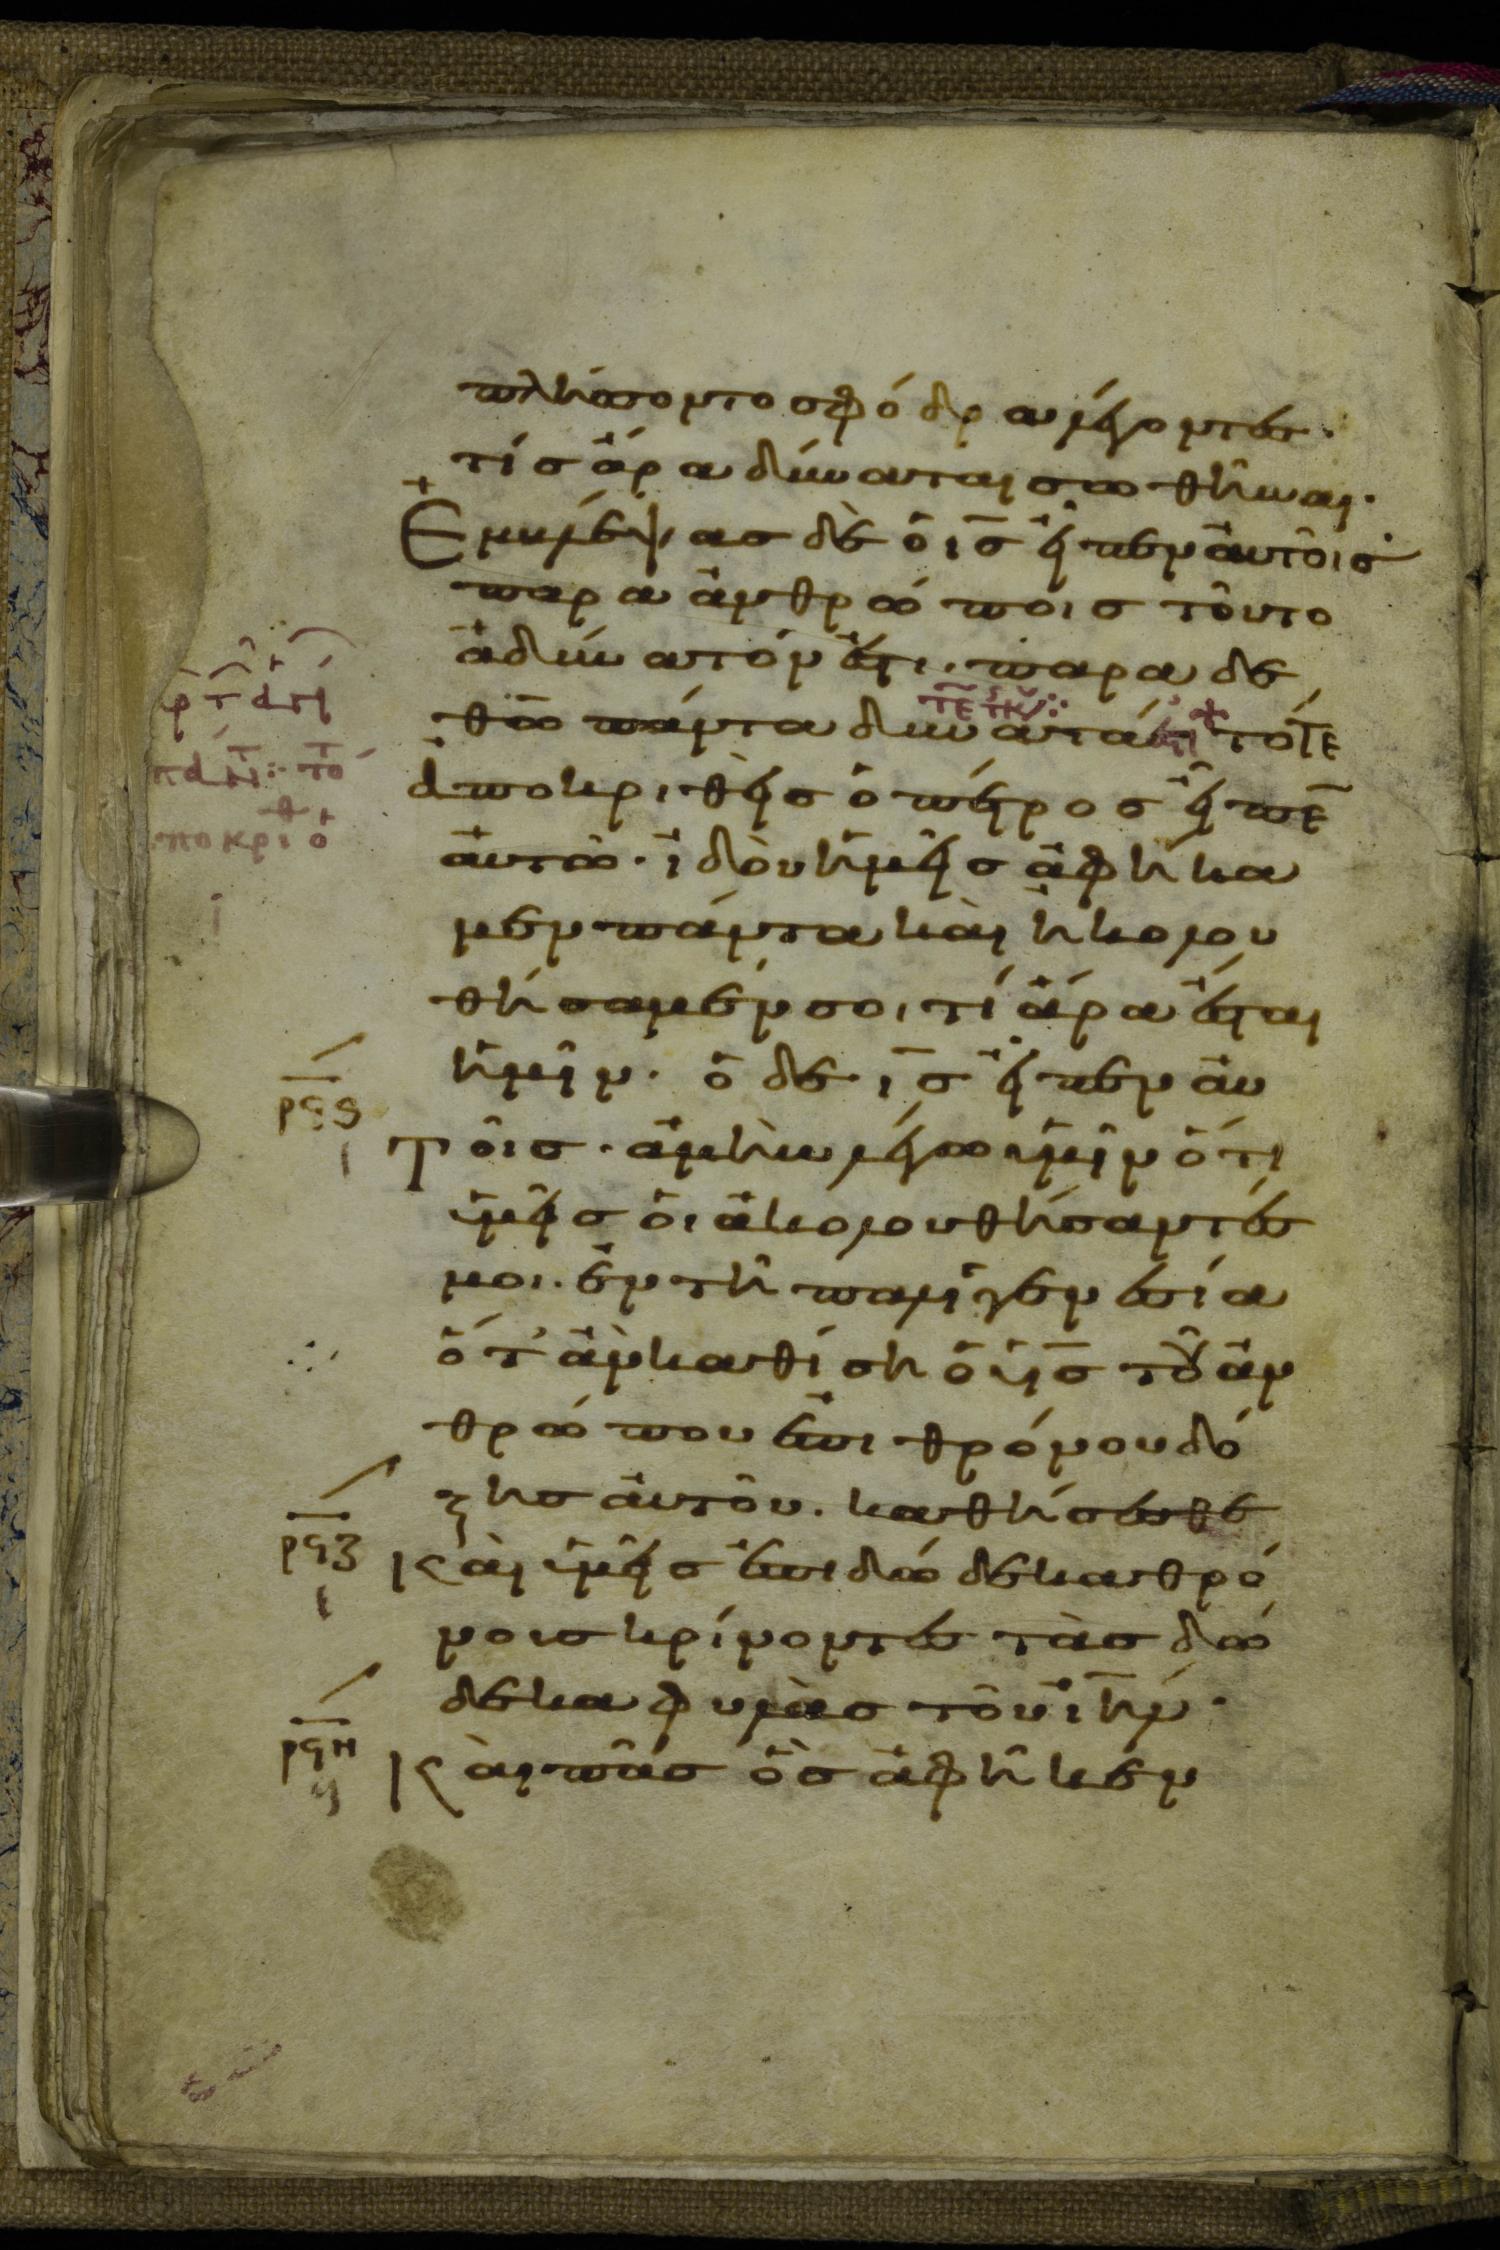 πλήσοντο σφόδρα λέγοντες·
τίς ἄρα δύναται σωθῆναι·
Ἐμβλέψας δὲ ὁ ις̅ εἶπεν αὐτοῖς·
παρα ἀνθρώποις τοῦτο
ἀδύνατόν ἐστι· παρα δε
τε̅ τη κυ
θω̅ πάντα δυνατά ἐστι τότε
ἀποκριθεὶς ὁ πέτρος εἶπε̅
αὐτῶ· ἰδοὺ ἡμεῖς ἀφήκα
μεν πάντα καὶ ἠκολου
θήσαμέν σοι, τί ἄρα ἔσται
ἡμῖν· ὁ δε ις̅ εἶπεν αὐ
ρϙϛ
ι
τοῖς· ἀμὴν λέγω ὑμῖν ὅτι
ὑμεῖς οἱ ἀκολουθήσαντές
μοι· ἐν τῆ παλιγγενεσία
ὅτ' ἀν καθίση ὁ υς̅ τοῦ ἀν
θρώπου ἐπι θρόνου δό
ξης αὐτοῦ· καθήσεσθε
ρϙζ
ι
καὶ ὑμεῖς ἐπι δώδεκα θρό
νοις κρίνοντες τὰς δώ
δεκα φυλὰς τοῦ ιηλ̅·
ρϙη
καὶ πᾶς ὃς ἀφῆκεν